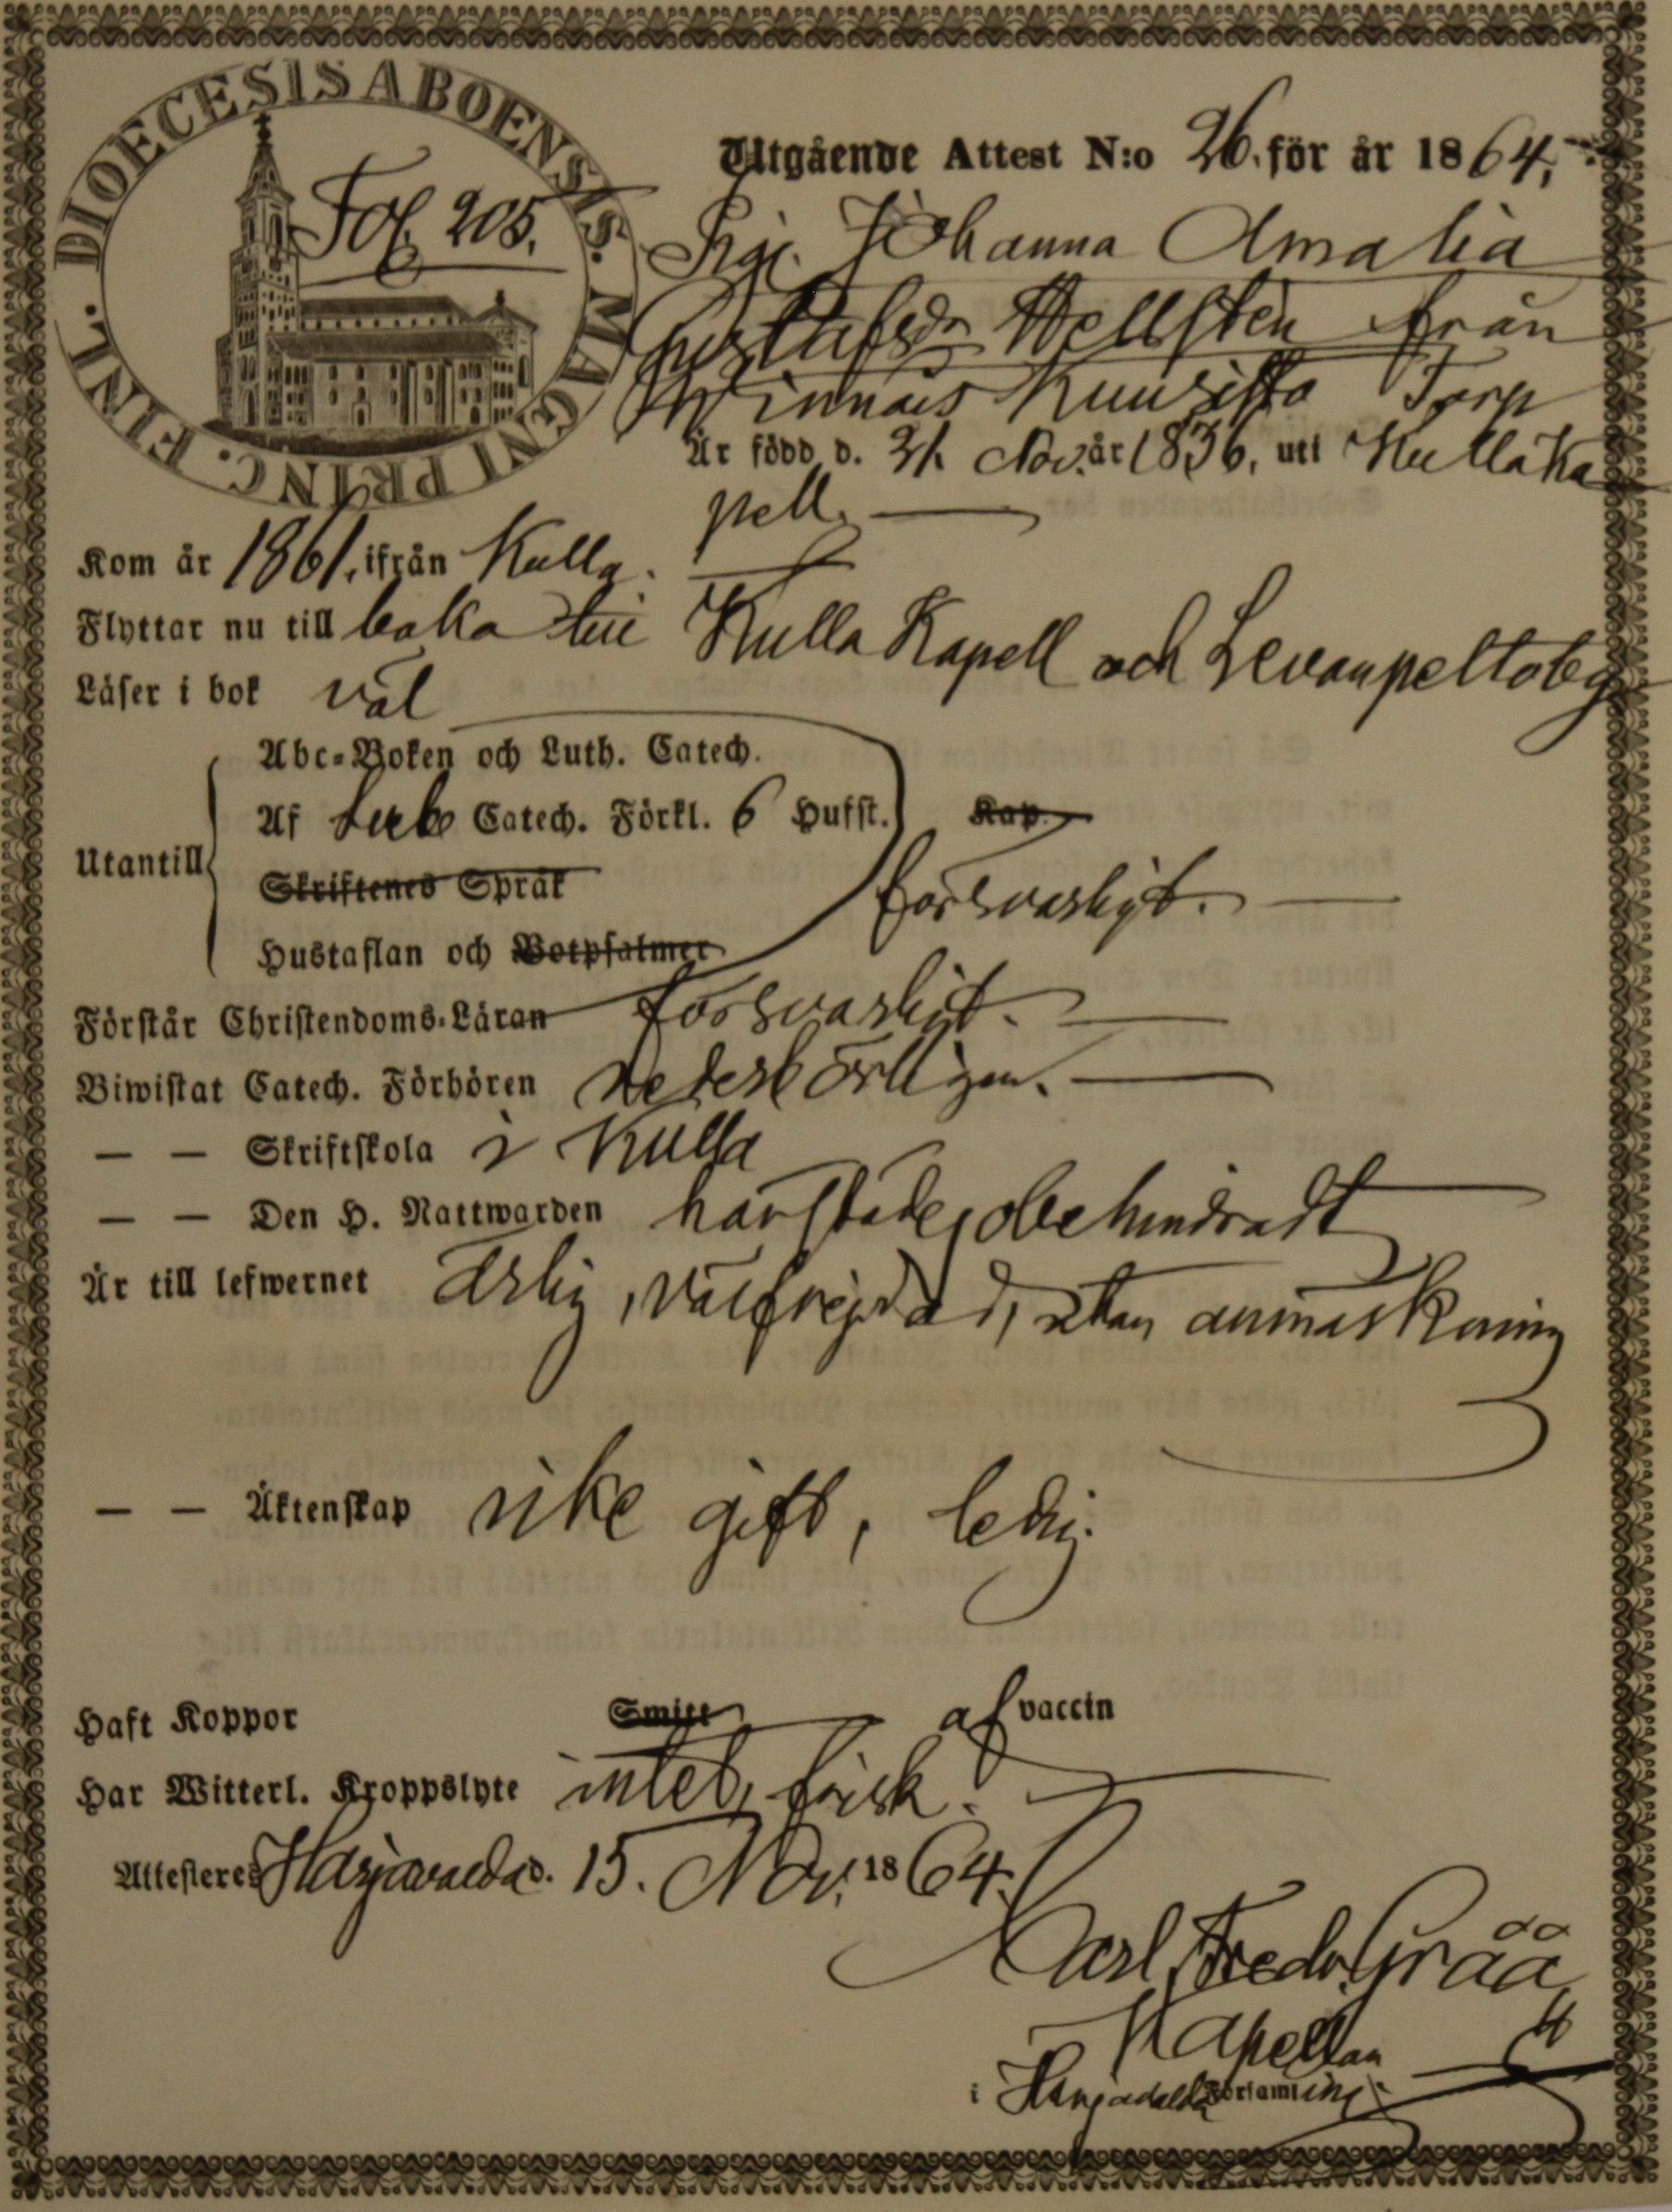 DIOECESIS ABOENSIS. MAGNI PRINC. FINL.
Fol. 205.
Utgående Attest N:o 26. för år 1864,
Pig. Johanna Amalia
Gustafsdr Hellsten från
Winnais Kuusisto Torp
Är född d. 21. Nov. år 1836, uti Kulla Ka
pell.
Kom år 1861. ifrån Kulla.
Flyttar nu till baka till Kulla Kapell och Levanpelto
Läser i bok väl
Utantill
Abc-Boken och Luth. Catech.
Af Catech. Förkl. 6 Hufst. Kap.
Skriftenes Språk försvarligt.
Hustaflan och Botpsalmer
Förstår Christendoms-Läran försvarligt.
Biwistat Catech. Förhören vederbörligen.
— — Skriftskola i Kulla
— — Den H. Nattwarden härstädes, obehindradt
Är till lefwernet ärlig, välfrejdad, utan anmärkning
— — Äktenskap icke gift, ledig.
Haft Koppor Smitt af vaccin
Har Witterl. Kroppslyte intet, frisk.
Attesteres Harjavalda d. 15. Nov. 1864.
Carl Fredr. Gråå
Kapellan
i Harjavalda Församling